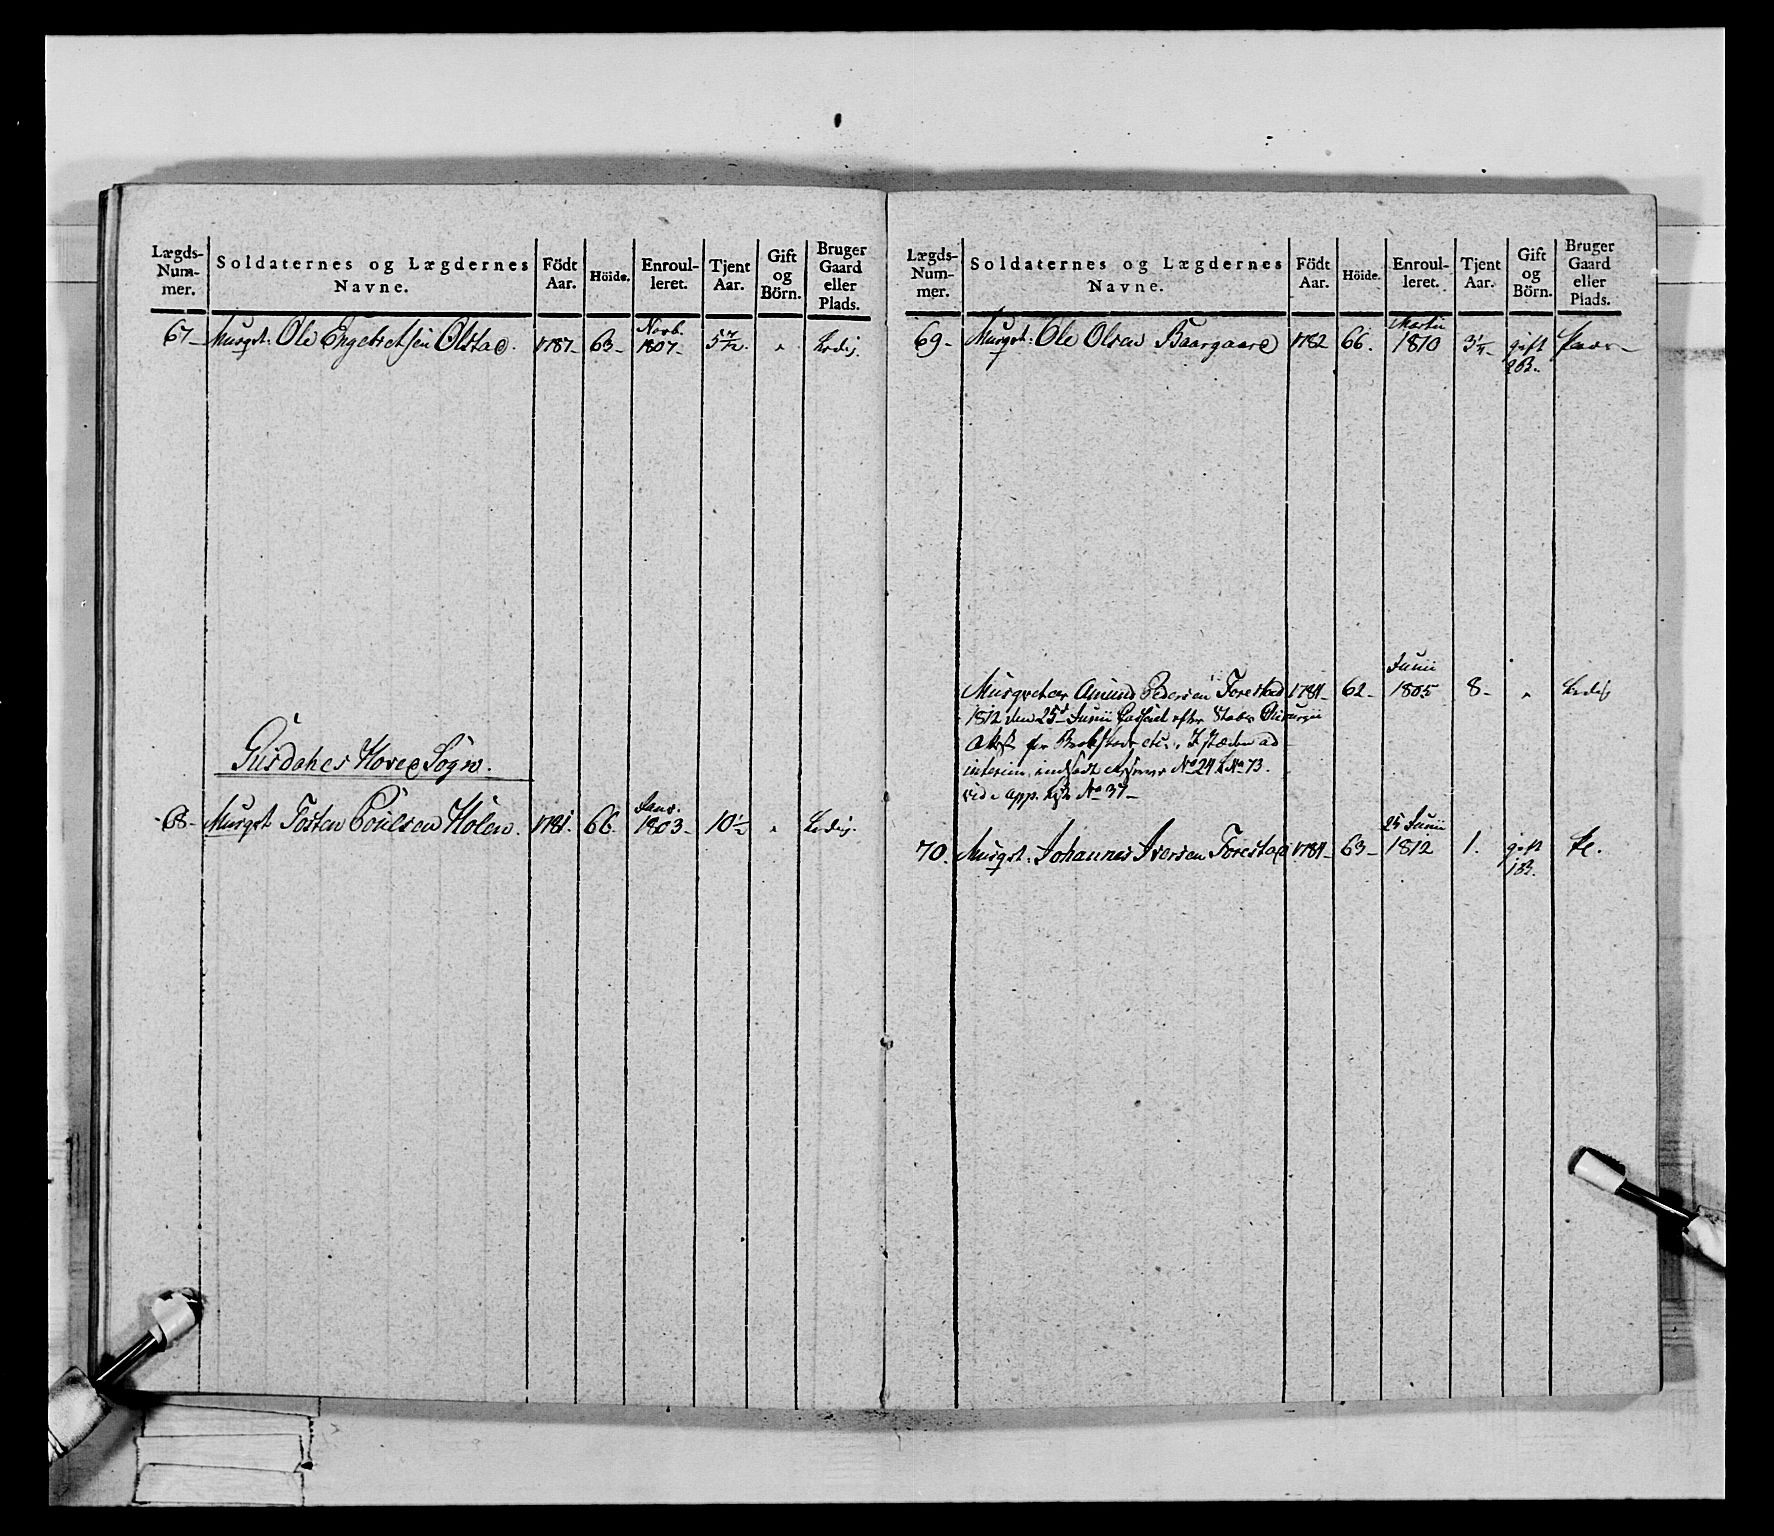 Lægds-Num-mer.
Soldaternes og Lægdernes Navne.
Födt Aar.
Höide.
Enroul-leret.
Tjent Aar.
Gift og Börn.
Bruger Gaard eller Plads.
67- Musqt: Ole Engebretsen Olstad. 1787- 63- Novb. 1807- 5 7/12. " Ledig.
Gusdahls Hoved Sogn.
68- Musqt Tosten Poulsen Holen. 1781. 66. Janv. 1803- 10 1/2 " Ledig.
Lægds-Num-mer.
Soldaternes og Lægdernes Navne.
Födt Aar.
Höide.
Enroul-leret.
Tjent Aar.
Gift og Börn.
Bruger Gaard eller Plads.
69- Musqt: Ole Olsen Baargaard 1782 66. Martii 1810 3 1/4- gift 2B. 
Musqveteer Amund Pedersen Forestad 1784- 62- Junii 1805 8- " Ledig
1812 den 25d Junii Casseret efter Stabs Chirurgii
Attest for Brokskade
interim indsadt No 24 L No 73.
vide App. No 37-
70. Musqt: Johannes Iversen Forestad 1784- 63- 25 Junii 1812 1. gift 1B.